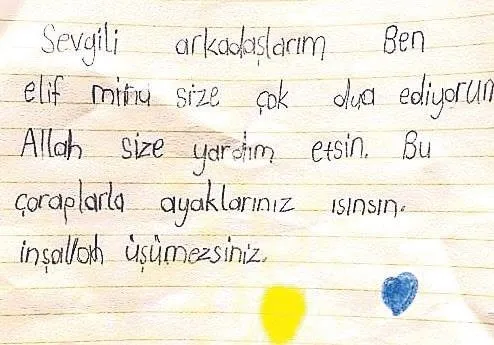 Sevgili arkadaşlarım Ben
elif minu size çok dua ediyorum
Allah size yardım etsin. Bu
çoraplarla ayaklarınız ısınsın.
inşallah üşümezsiniz.